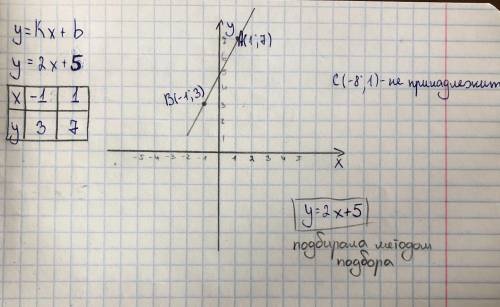 y=Kx+b
y=2x+5
x -1 1
y 3 7
y
A(1;7)
B(-1;3)
C(-8;1)-не принадлежит
-5 -4 -3 -2 -1 1 2 3 4 5
x
y=2x+5
подбирала методом
подбора